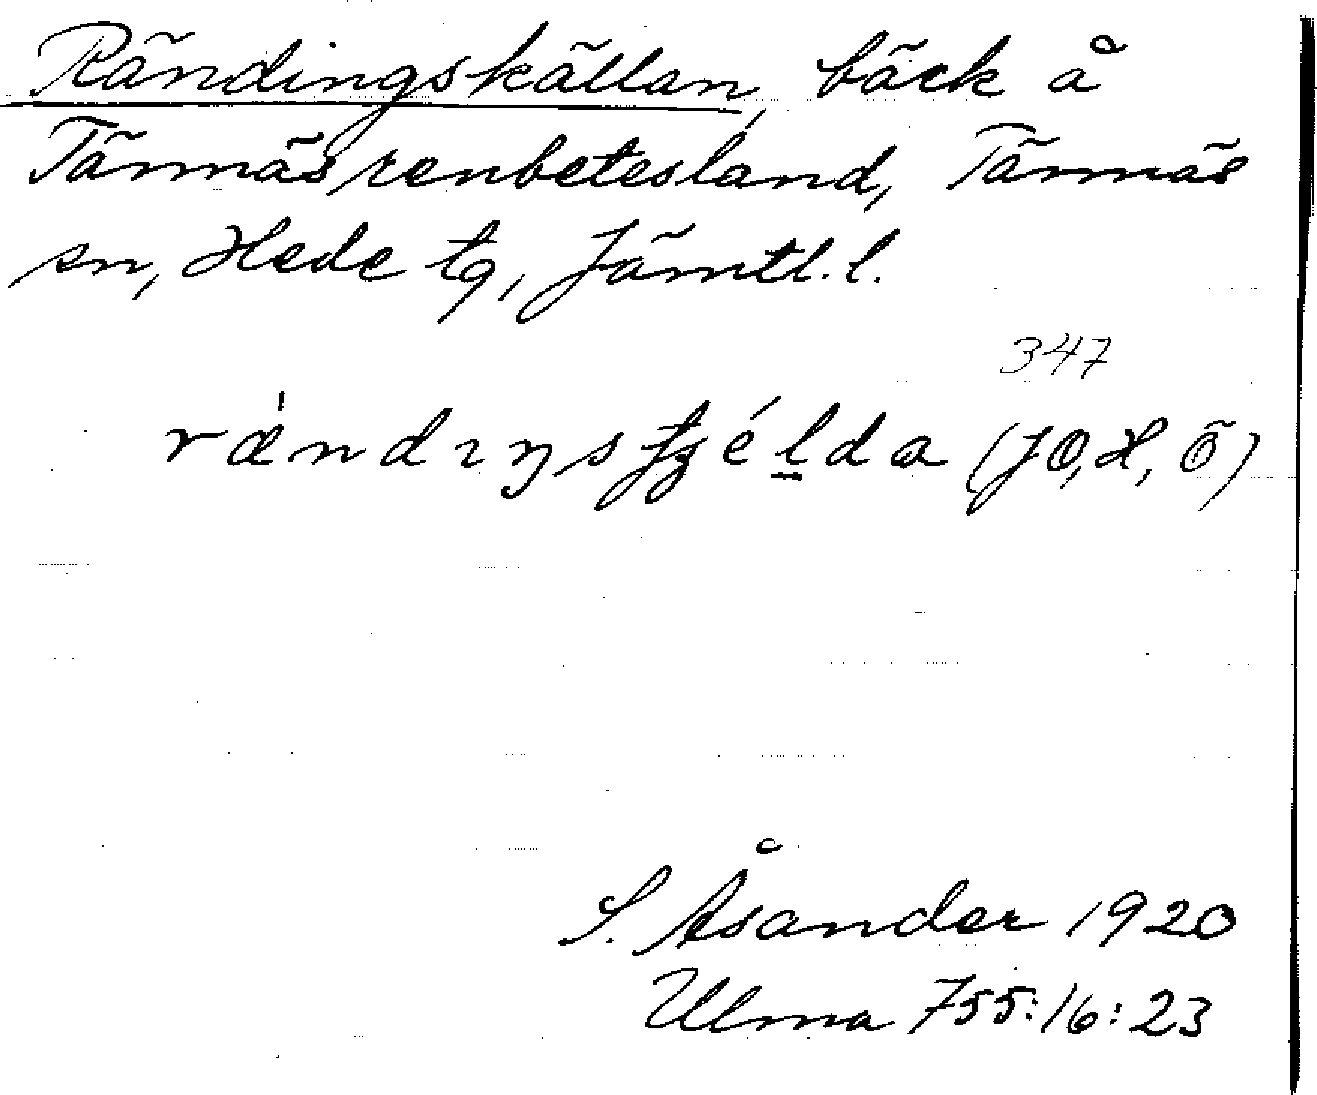 Rändingskällan, bäck å
Tännäs renbetesland, Tännäs
sn, Hede tg, Jämtl. l.
347
(JO, H, Ö)
S. Åsander 1920
Ulma 755:16:23